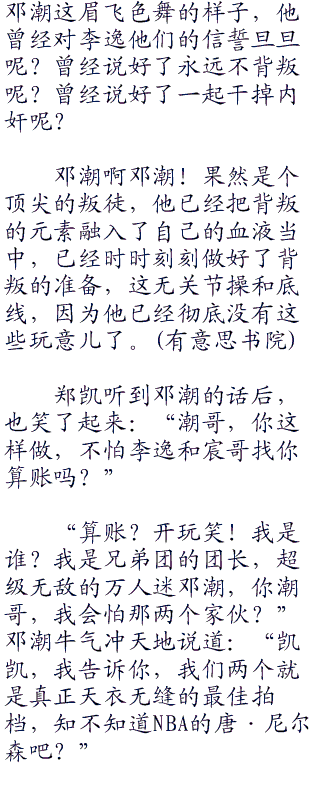 邓潮这眉飞色舞的样子，他
曾经对李逸他们的信誓旦旦
呢？曾经说好了永远不背叛
呢？曾经说好了一起干掉内
奸呢？
邓潮啊邓潮！果然是个
顶尖的叛徒，他已经把背叛
的元素融入了自己的血液当
中，已经时时刻刻做好了背
叛的准备，这无关节操和底
线，因为他已经彻底没有这
些玩意儿了。(有意思书院)
郑凯听到邓潮的话后，
也笑了起来：“潮哥，你这
样做，不怕李逸和宸哥找你
算账吗？”
“算账？开玩笑！我是
谁？我是兄弟团的团长，超
级无敌的万人迷邓潮，你潮
哥，我会怕那两个家伙？”
邓潮牛气冲天地说道：“凯
凯，我告诉你，我们两个就
是真正天衣无缝的最佳拍
档，知不知道NBA的唐·尼尔
森吧？”